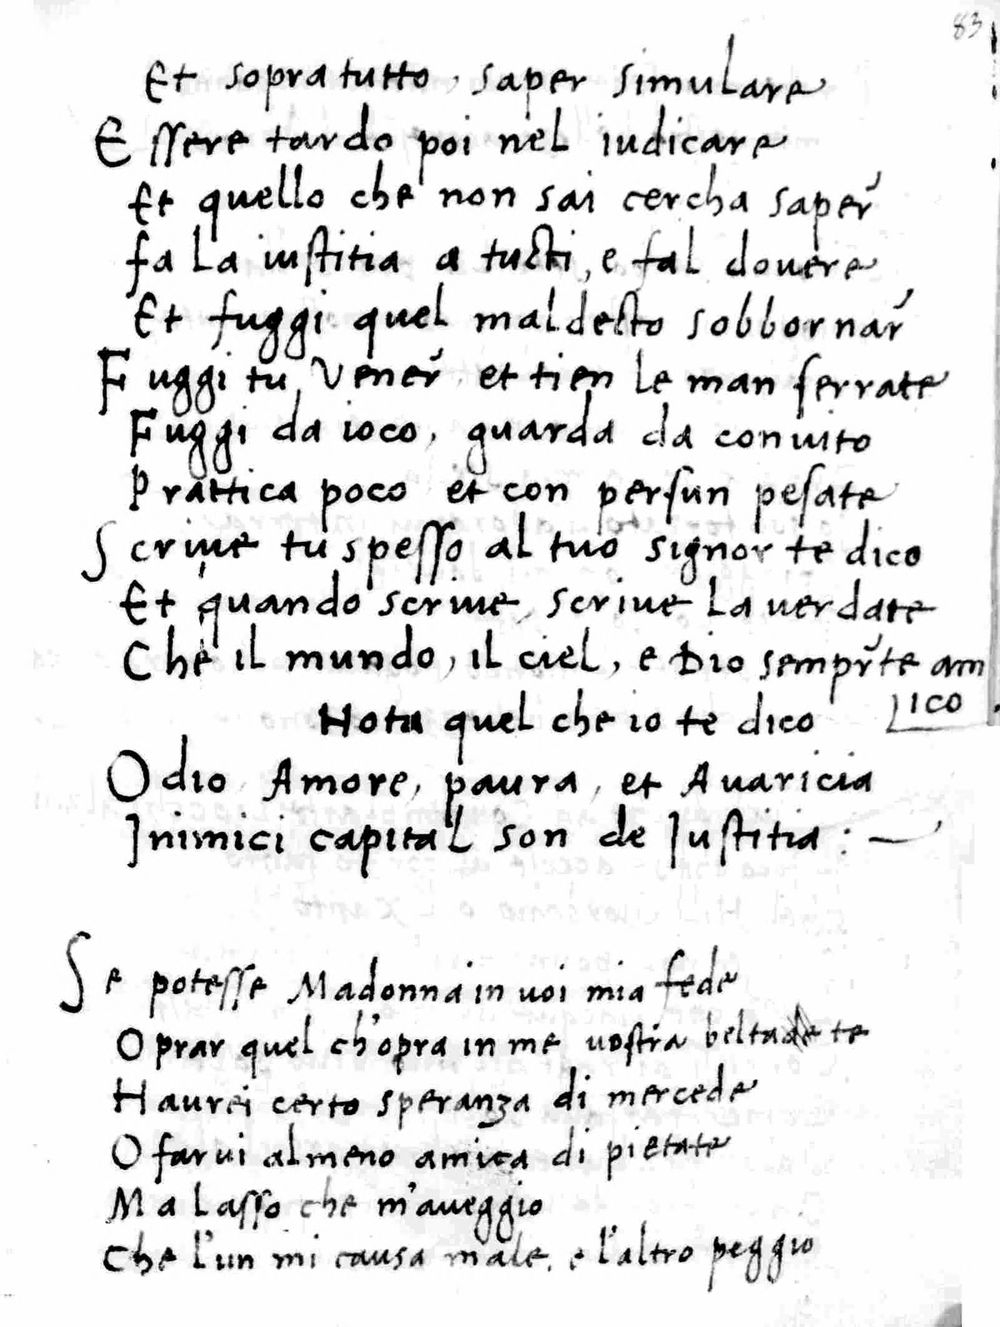 83
Et sopra tutto, saper simulare
Essere tardo poi nel iudicare
Et quello che non sai cercha saper
fa la iustitia a tucti, e fal douere
Et fuggi quel maldecto sobbornar
Fuggi tu Vener et tien le man serrate
Fuggi da ioco, guarda da conuito
Prattica poco et con persun pesate
Scriue tu spesso al tuo signor te dico
Et quando scriue, scriue la uerdate
Che il mundo, il ciel, e Dio sempr te am
ico
Nota quel che io te dico
Odio Amore, paura, et Auaricia
Inimici capital son de Iustitia : —
Se potesse Madonna in uoi mia fede
Oprar quel ch'opra in me uostra beltade te
Haurei certo speranza di mercede
O farui almeno amica di pietate
Ma lasso che m'aueggio
Che l'un mi causa male, e l'altro peggio